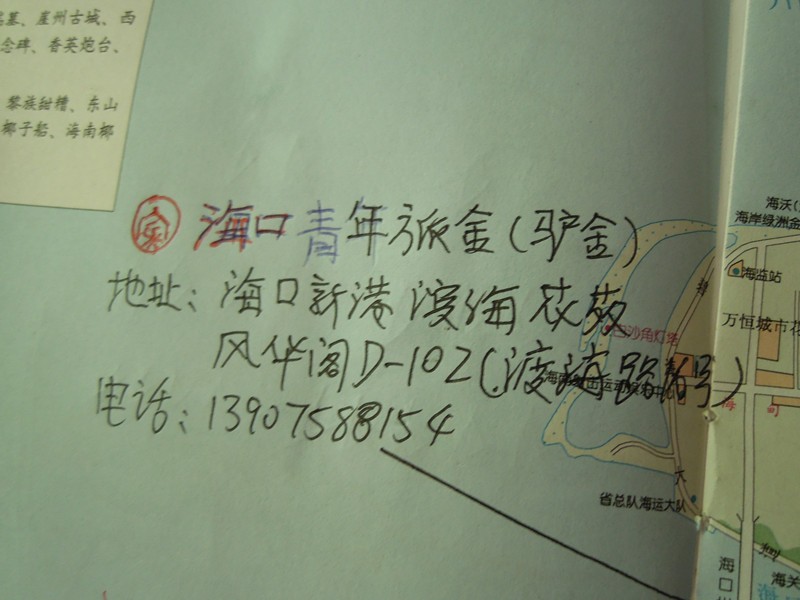 崖州古城、西
念碑、香英炮台、
黎族甜糟、东山
椰子船、海南椰
海口青年旅舍(驴舍)
地址：海口新港滨海花苑
风华阁D-102(渡海路号)
电话：13907588154
海沃(
海岸绿洲金
海监站
万恒城市花
白沙角灯塔
省总队海运大队
大
海口
海关